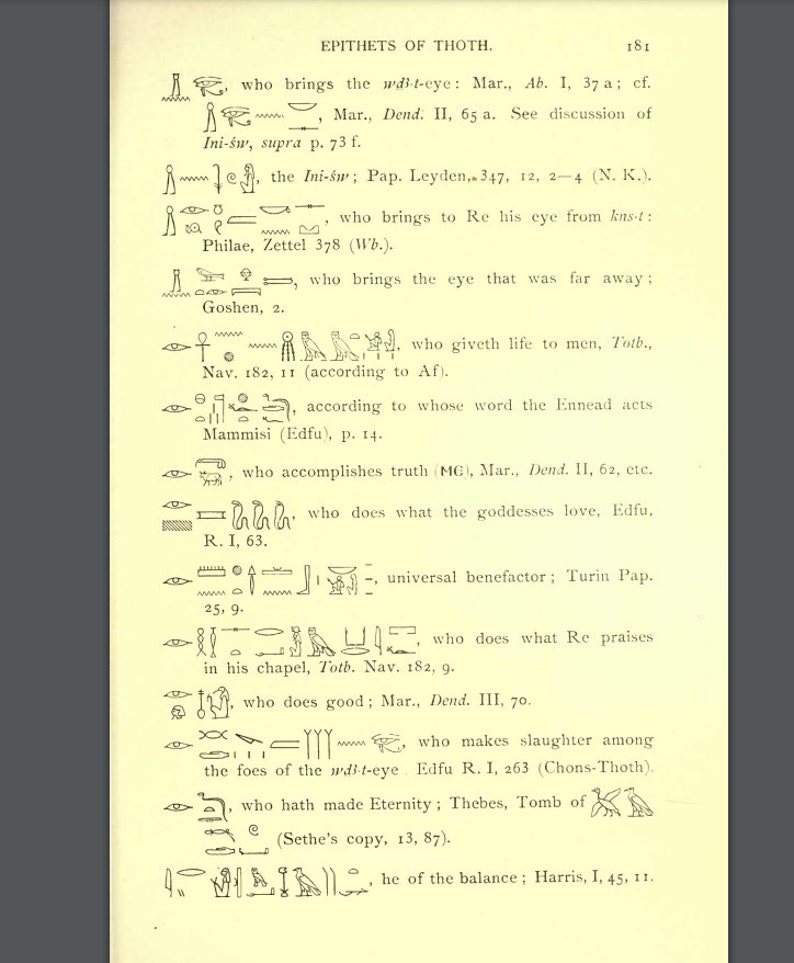 EPITHETS OF THOTH. 181
, who brings the wḏꜣ·t-eye: Mar., Ab. I, 37 a; cf.
, Mar., Dend. II, 65 a. See discussion of
Ini-św, supra p. 73 f.
, the Ini-św; Pap. Leyden, 347, 12, 2—4 (N. K.).
, who brings to Re his eye from kns·t:
Philae, Zettel 378 (Wb.).
, who brings the eye that was far away;
Goshen, 2.
, who giveth life to men, Totb.,
Nav. 182, 11 (according to Af).
, according to whose word the Ennead acts
Mammisi (Edfu), p. 14.
, who accomplishes truth (ⲙⲉ), Mar., Dend. II, 62, etc.
, who does what the goddesses love, Edfu,
R. I, 63.
, universal benefactor; Turin Pap.
25, 9.
, who does what Re praises
in his chapel, Totb. Nav. 182, 9.
, who does good; Mar., Dend. III, 70.
, who makes slaughter among
the foes of the wḏꜣ·t-eye. Edfu R. I, 263 (Chons-Thoth).
, who hath made Eternity; Thebes, Tomb of
(Sethe's copy, 13, 87).
, he of the balance; Harris, I, 45, 11.